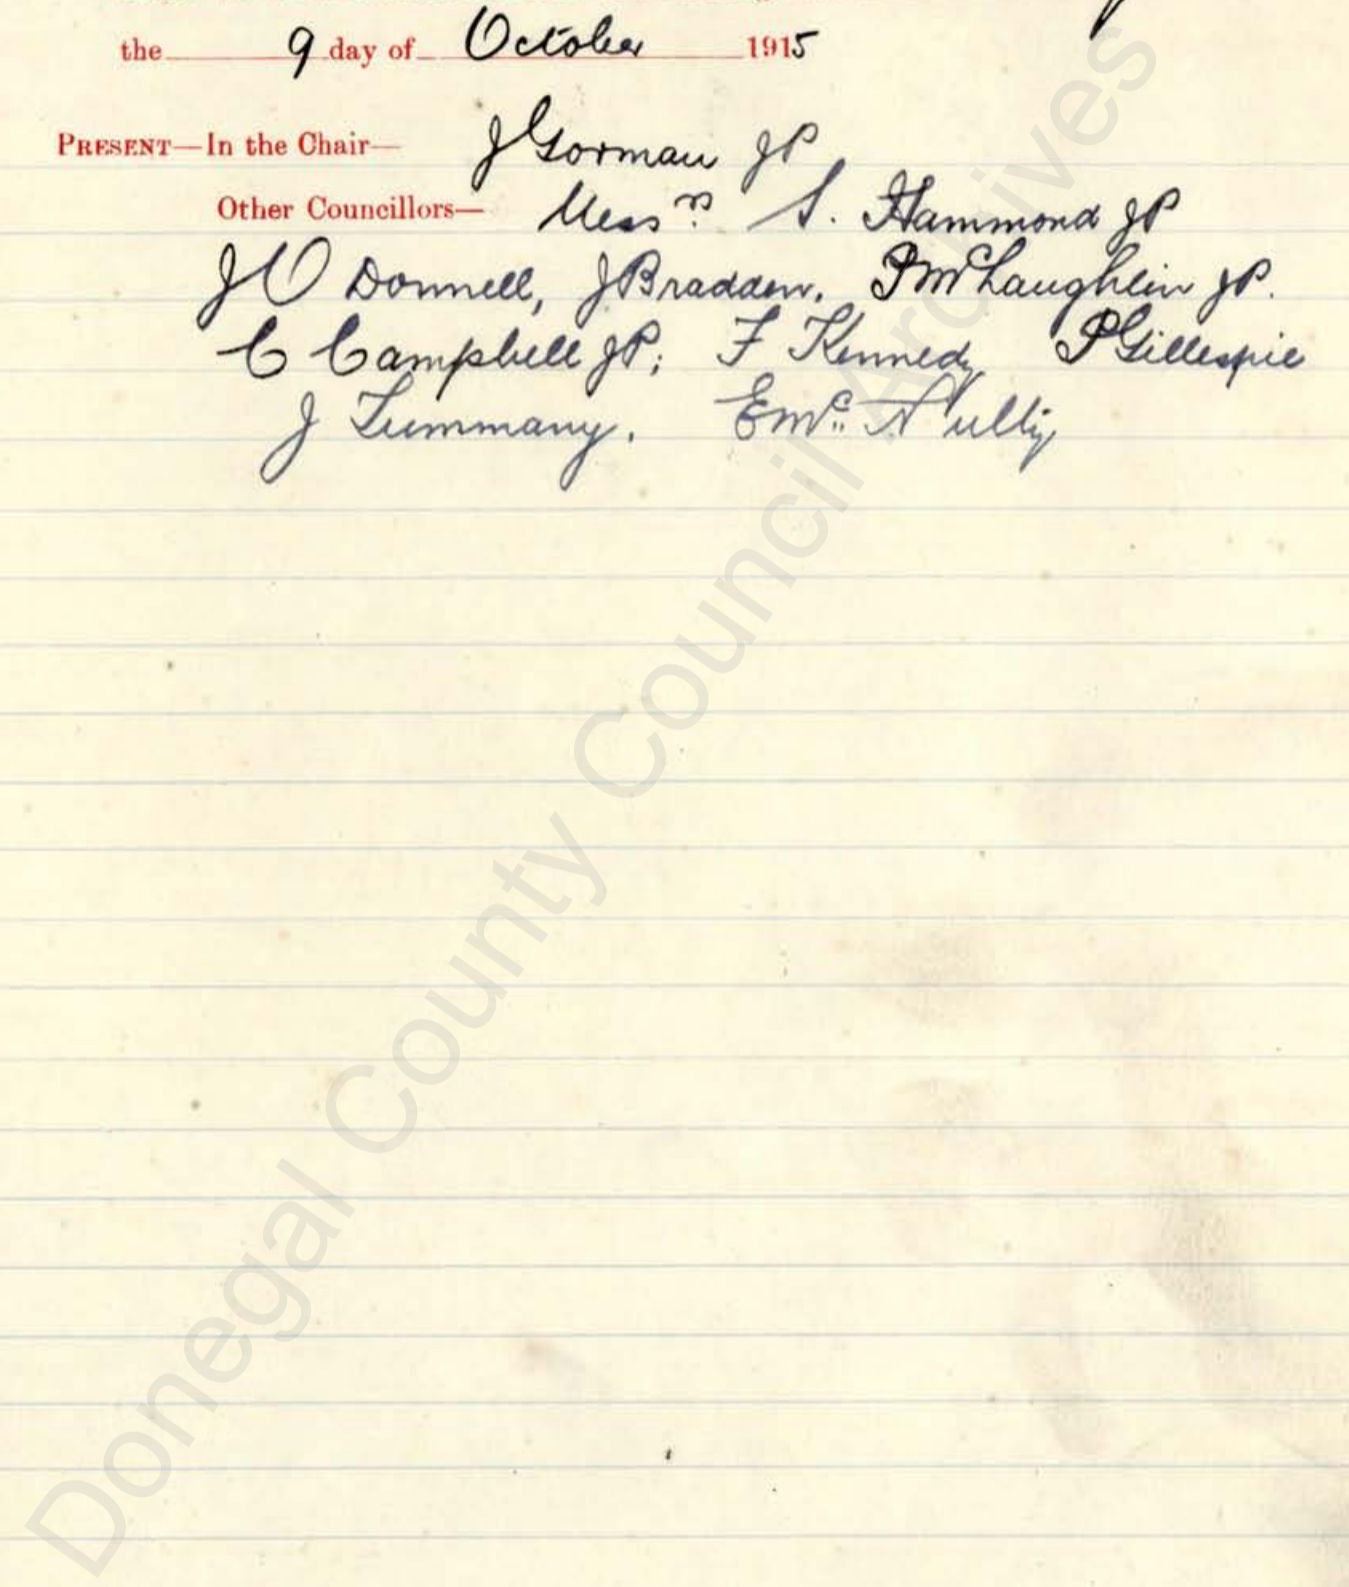 the 9 day of October 1915
PRESENT—In the Chair— J Gorman JP
Other Councillors— Messrs. S. Hammond JP
J O Donnell, J Bradden, P McLaughlin JP.
C Campbell JP; F Kennedy P Gillespie
J Tummany. E Mc Nulty
Donegal County Council Archives